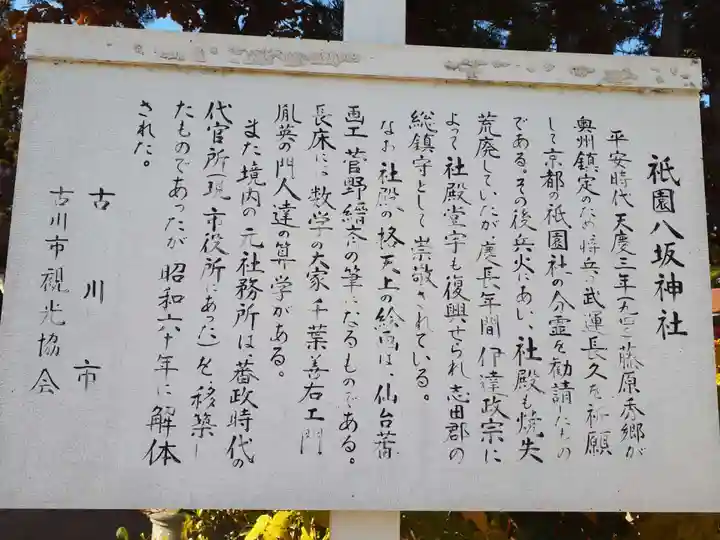 祇園八坂神社
平安時代 天慶三年(九四〇)藤原秀郷が
奥州鎮定のため将兵の武運長久を祈願
して京都の祇園社の分霊を勧請したもの
である。その後兵火にあい、社殿も焼失
荒廃していたが慶長年間伊達政宗に
よって社殿堂宇も復興せられ志田郡の
総鎮守として崇敬されている。
なお社殿の格天上の絵画は、仙台藩
画工菅野縉斎の筆になるものである。
長床には数学の大家千葉善右エ門
胤英の門人達の算学がある。
また境内の元社務所は、蕃政時代の
代官所(現市役所にあった)を移築し
たものであったが昭和六十年に解体
された。
古川市
古川市観光協会